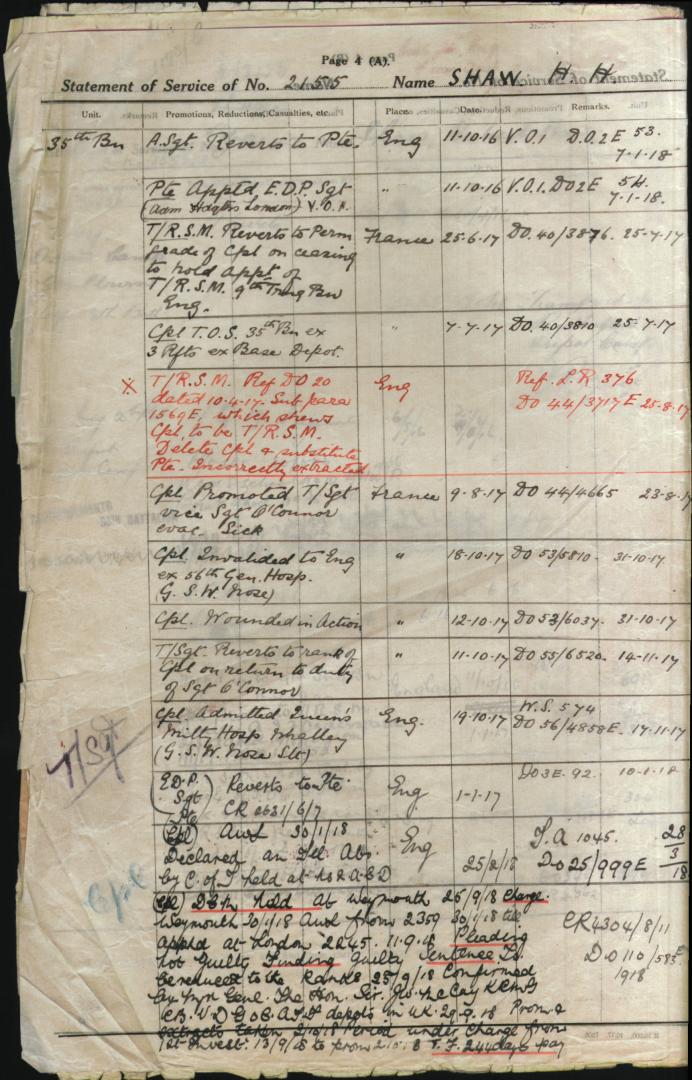 Page 4 (A).
Statement of Service of No. 2155 Name SHAW H H
Unit. Promotions, Reductions, Casualties, etc. Place. Date. Remarks.
35th Bn A.Sgt. Reverts to Pte. Eng 11-10-16 V.O.1 D.O.2E 53.
7-1-18
Pte Apptd E.D.P. Sgt " 11-10-16 V.O.1. DO2E 54.
(Adm Hdqtrs London) V.O.1. 7-1-18.
T/R.S.M. Reverts to Perm France 25-6-17 DO. 40/3876. 25-7-17
grade of Cpl on ceasing
to hold Appt of
T/R.S.M. 9th Trng Bn
Eng.
Cpl T.O.S. 35th Bn ex " 7-7-17 DO. 40/3810 25-7-17
3 Rfts ex Base Depot.
※ T/R.S.M. Ref DO 20 Eng Ref. L.R 376
dated 10-4-17. Sub para DO 44/3717E 25-8-17
1569E, which shews
Cpl. to be T/R.S.M.
Delete Cpl & substitute
Pte. Incorrectly extracted
Cpl Promoted T/Sgt France 9-8-17 DO 44/4665 23-8-17
vice Sgt O'Connor
evac. Sick
Cpl Invalided to Eng " 18-10-17 DO 53/5810 - 31-10-17
ex 56th Gen. Hosp.
G.S.W. Nose)
Cpl. Wounded in Action " 12-10-17 DO 53/6037. 31-10-17
T/Sgt. Reverts to rank of " 11-10-17 DO 55/6520. 14-11-17
Cpl on return to duty
of Sgt O'Connor
Cpl. Admitted Queen's Eng. 19-10-17 W.S. 574
Milt. Hosp Whalley DO 56/4858E. 17-11-17
(G.S.W. Nose Slt)
T/Sgt
E.D.P. Sgt Reverts to Pte Eng 1-1-17 DO3E. 92. 10-1-18
CR 2631/6/7
(Cpl) Awl 30/1/18 Eng F.A 1045. 28
Declared an Ill Abs 25/2/18 DO25/999E 3
by C. of I held at No 2 A.C.D 18
Cpl
(Cpl) D.C.M. held at Weymouth 25/9/18 Charge.
Weymouth 30/1/18 Awl from 2359 30/1/18 till
apptd at London 2045. 11.9.18 Pleading CR4304/8/11
Not Guilty Finding Guilty Sentence To DO 110/583E
be reduced to the Ranks 25/9/18 Confirmed 1918
by Myr Genl. The Hon. Sir. J.W. McCay KCMG
C.B. V.D G.O.C. A.I.F. depots in UK. 29.9.18 Prom &
extracts taken 2/10/18 Period under charge from
1st Invest: 13/9/18 to prom 2.10.18 T.F. 244 days pay